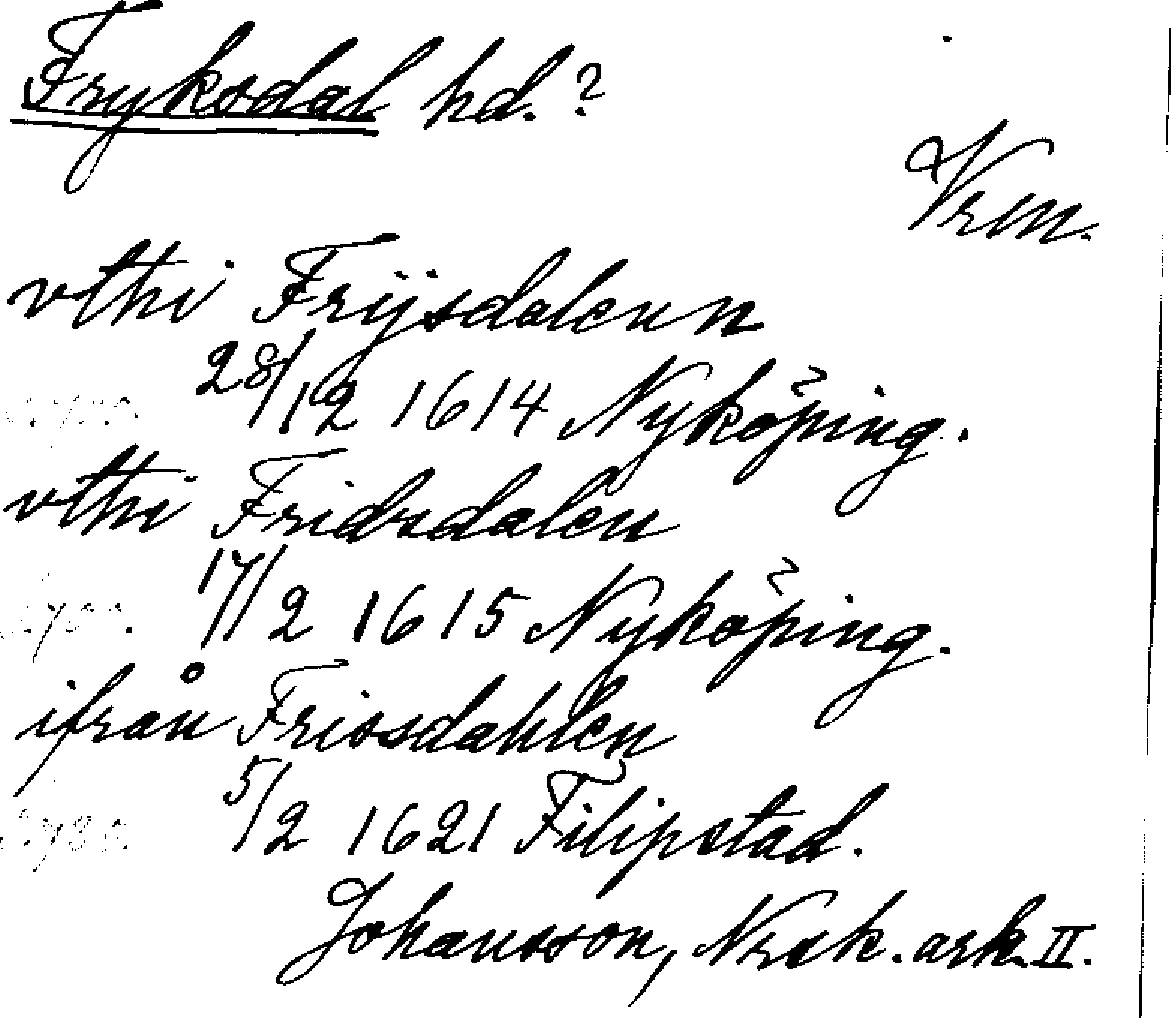 Fryksdal hd.?
Vrm.
vthi Frijsdalenn
28/12 1614 Nyköping.
vthi Fridsdalen
17/2 1615 Nyköping.
ifrån Frissdahlen
5/2 1621 Filipstad.
Johansson, Nrsk. ark. II.